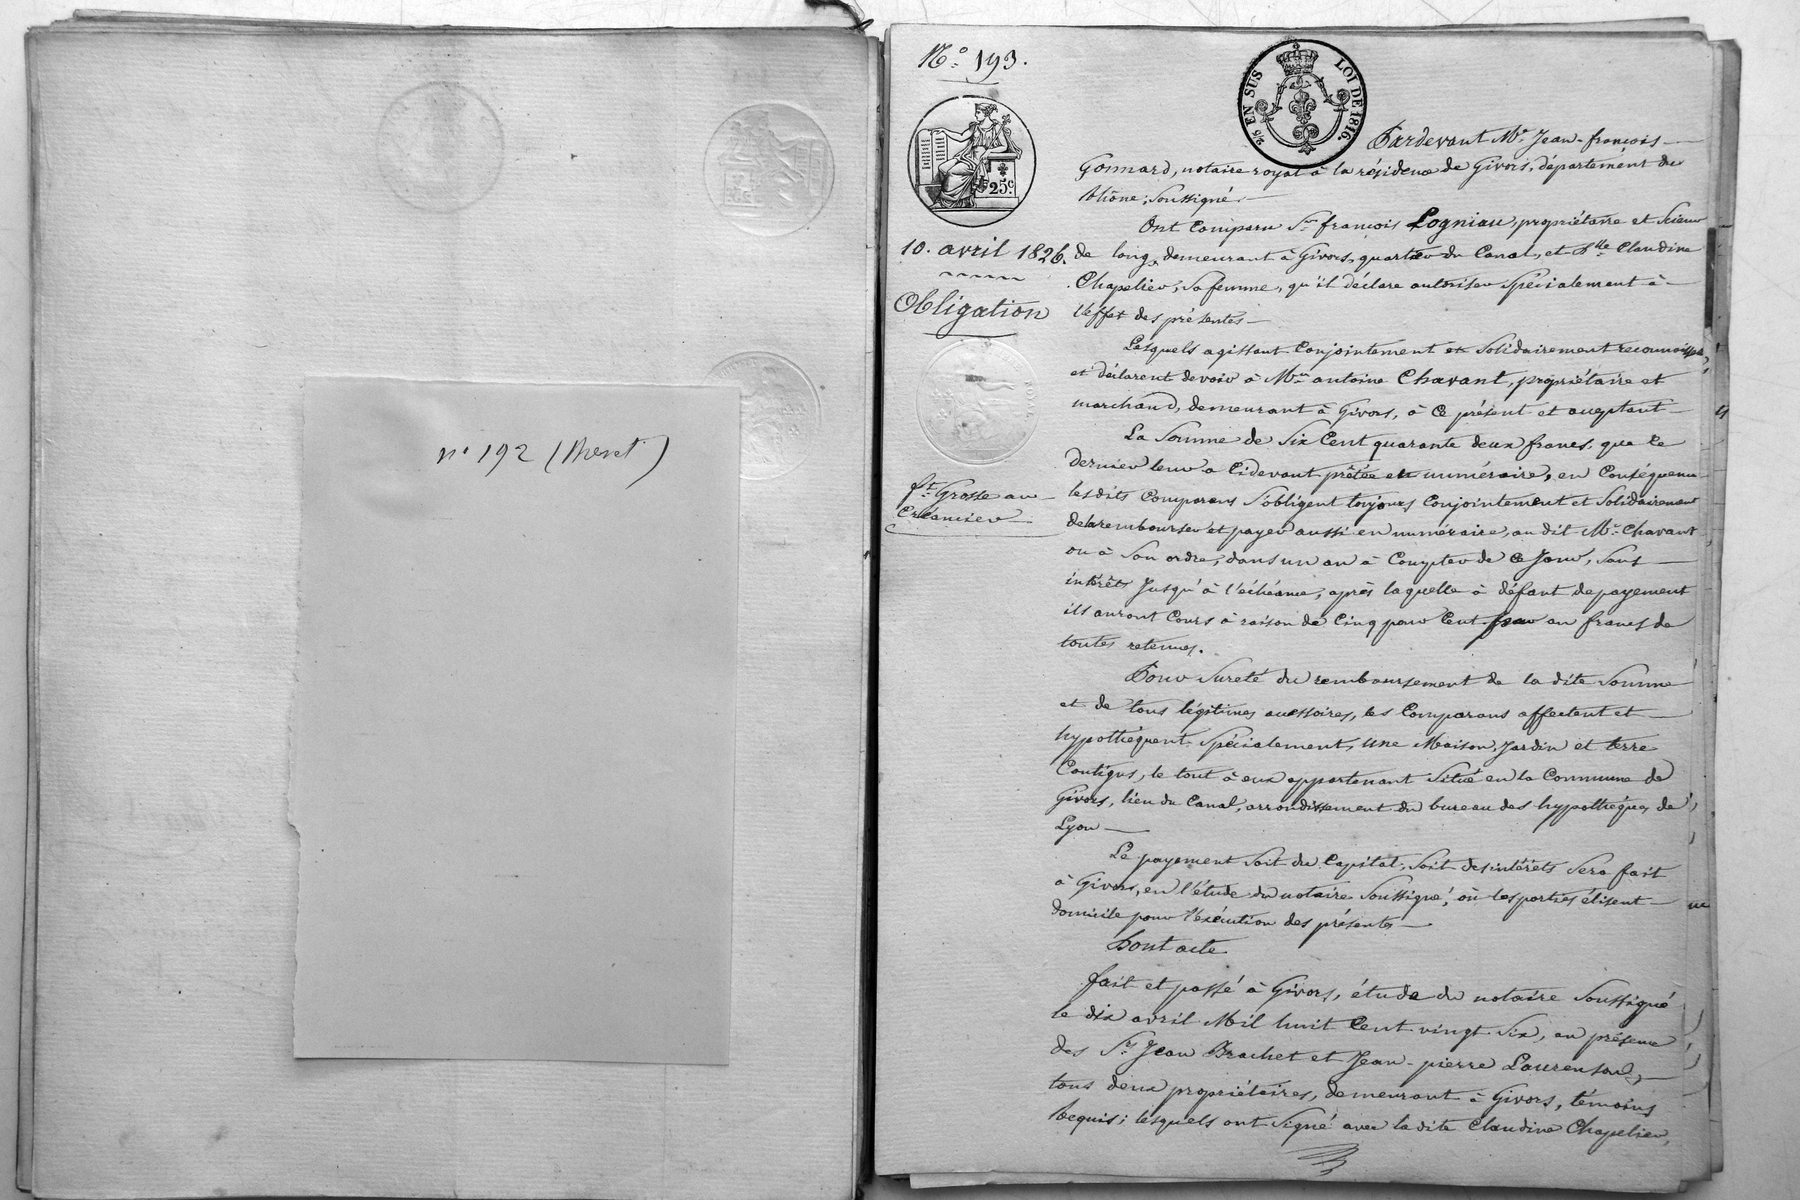 n° 192 (Brevet)
N° 193.
25c
10. avril 1826.
Obligation
fte Grosse au
Créancier
2/5 EN SUS LOI DE 1816.
Pardevant Me Jean-françois
Gonnard, notaire royal à la résidence de Givors, département du
Rhône, soussigné.
Ont Comparu Sr françois Logniau, propriétaire et Scieur
de long, demeurant à Givors, quartier du Canal, et Dlle Claudine
Chapelier, sa femme, qu'il déclare autoriser Spécialement à
l'effet des présentes
Lesquels agissant Conjointement et Solidairement reconnaissent
et déclarent devoir à Mr antoine Chavant, propriétaire et
marchand, demeurant à Givors, à Ce présent et acceptant
La Somme de Six Cent quarante deux francs, que Ce
dernier leur a Cidevant prêtée en numéraire, en Conséquence
lesdits Comparans S'obligent toujours Conjointement et Solidairement
de la rembourser et payer aussi en numéraire, au dit Mr Chavant
ou à Son ordre, dans un an à Compter de Ce Jour, Sans
intérêts Jusqu'à l'échéance, après laquelle à défaut de payement
ils auront Cours à raison de Cinq pour Cent par an francs de
toutes retenues.
Pour Sureté du remboursement de la dite Somme
et de tous légitimes accessoires, les Comparans affectent et
hypothèquent Spécialement, une Maison, Jardin et terre
Contigus, le tout à eux appartenant Situé en la Commune de
Givors, lieu du Canal, arrondissement du bureau des hypothèques de
Lyon
Le payement Soit du Capital, Soit des intérêts Sera fait
à Givors, en l'étude du notaire Soussigné, où les parties élisent
domicile pour l'exécution des présentes
Dont acte
fait et passé à Givors, étude du notaire Soussigné
le dix avril Mil huit Cent vingt Six, en présence
des Srs Jean Brachet et Jean-pierre Laurenson,
tous deux propriétaires, demeurant à Givors, témoins
Requis; lesquels ont Signé avec la dite Claudine Chapelier,